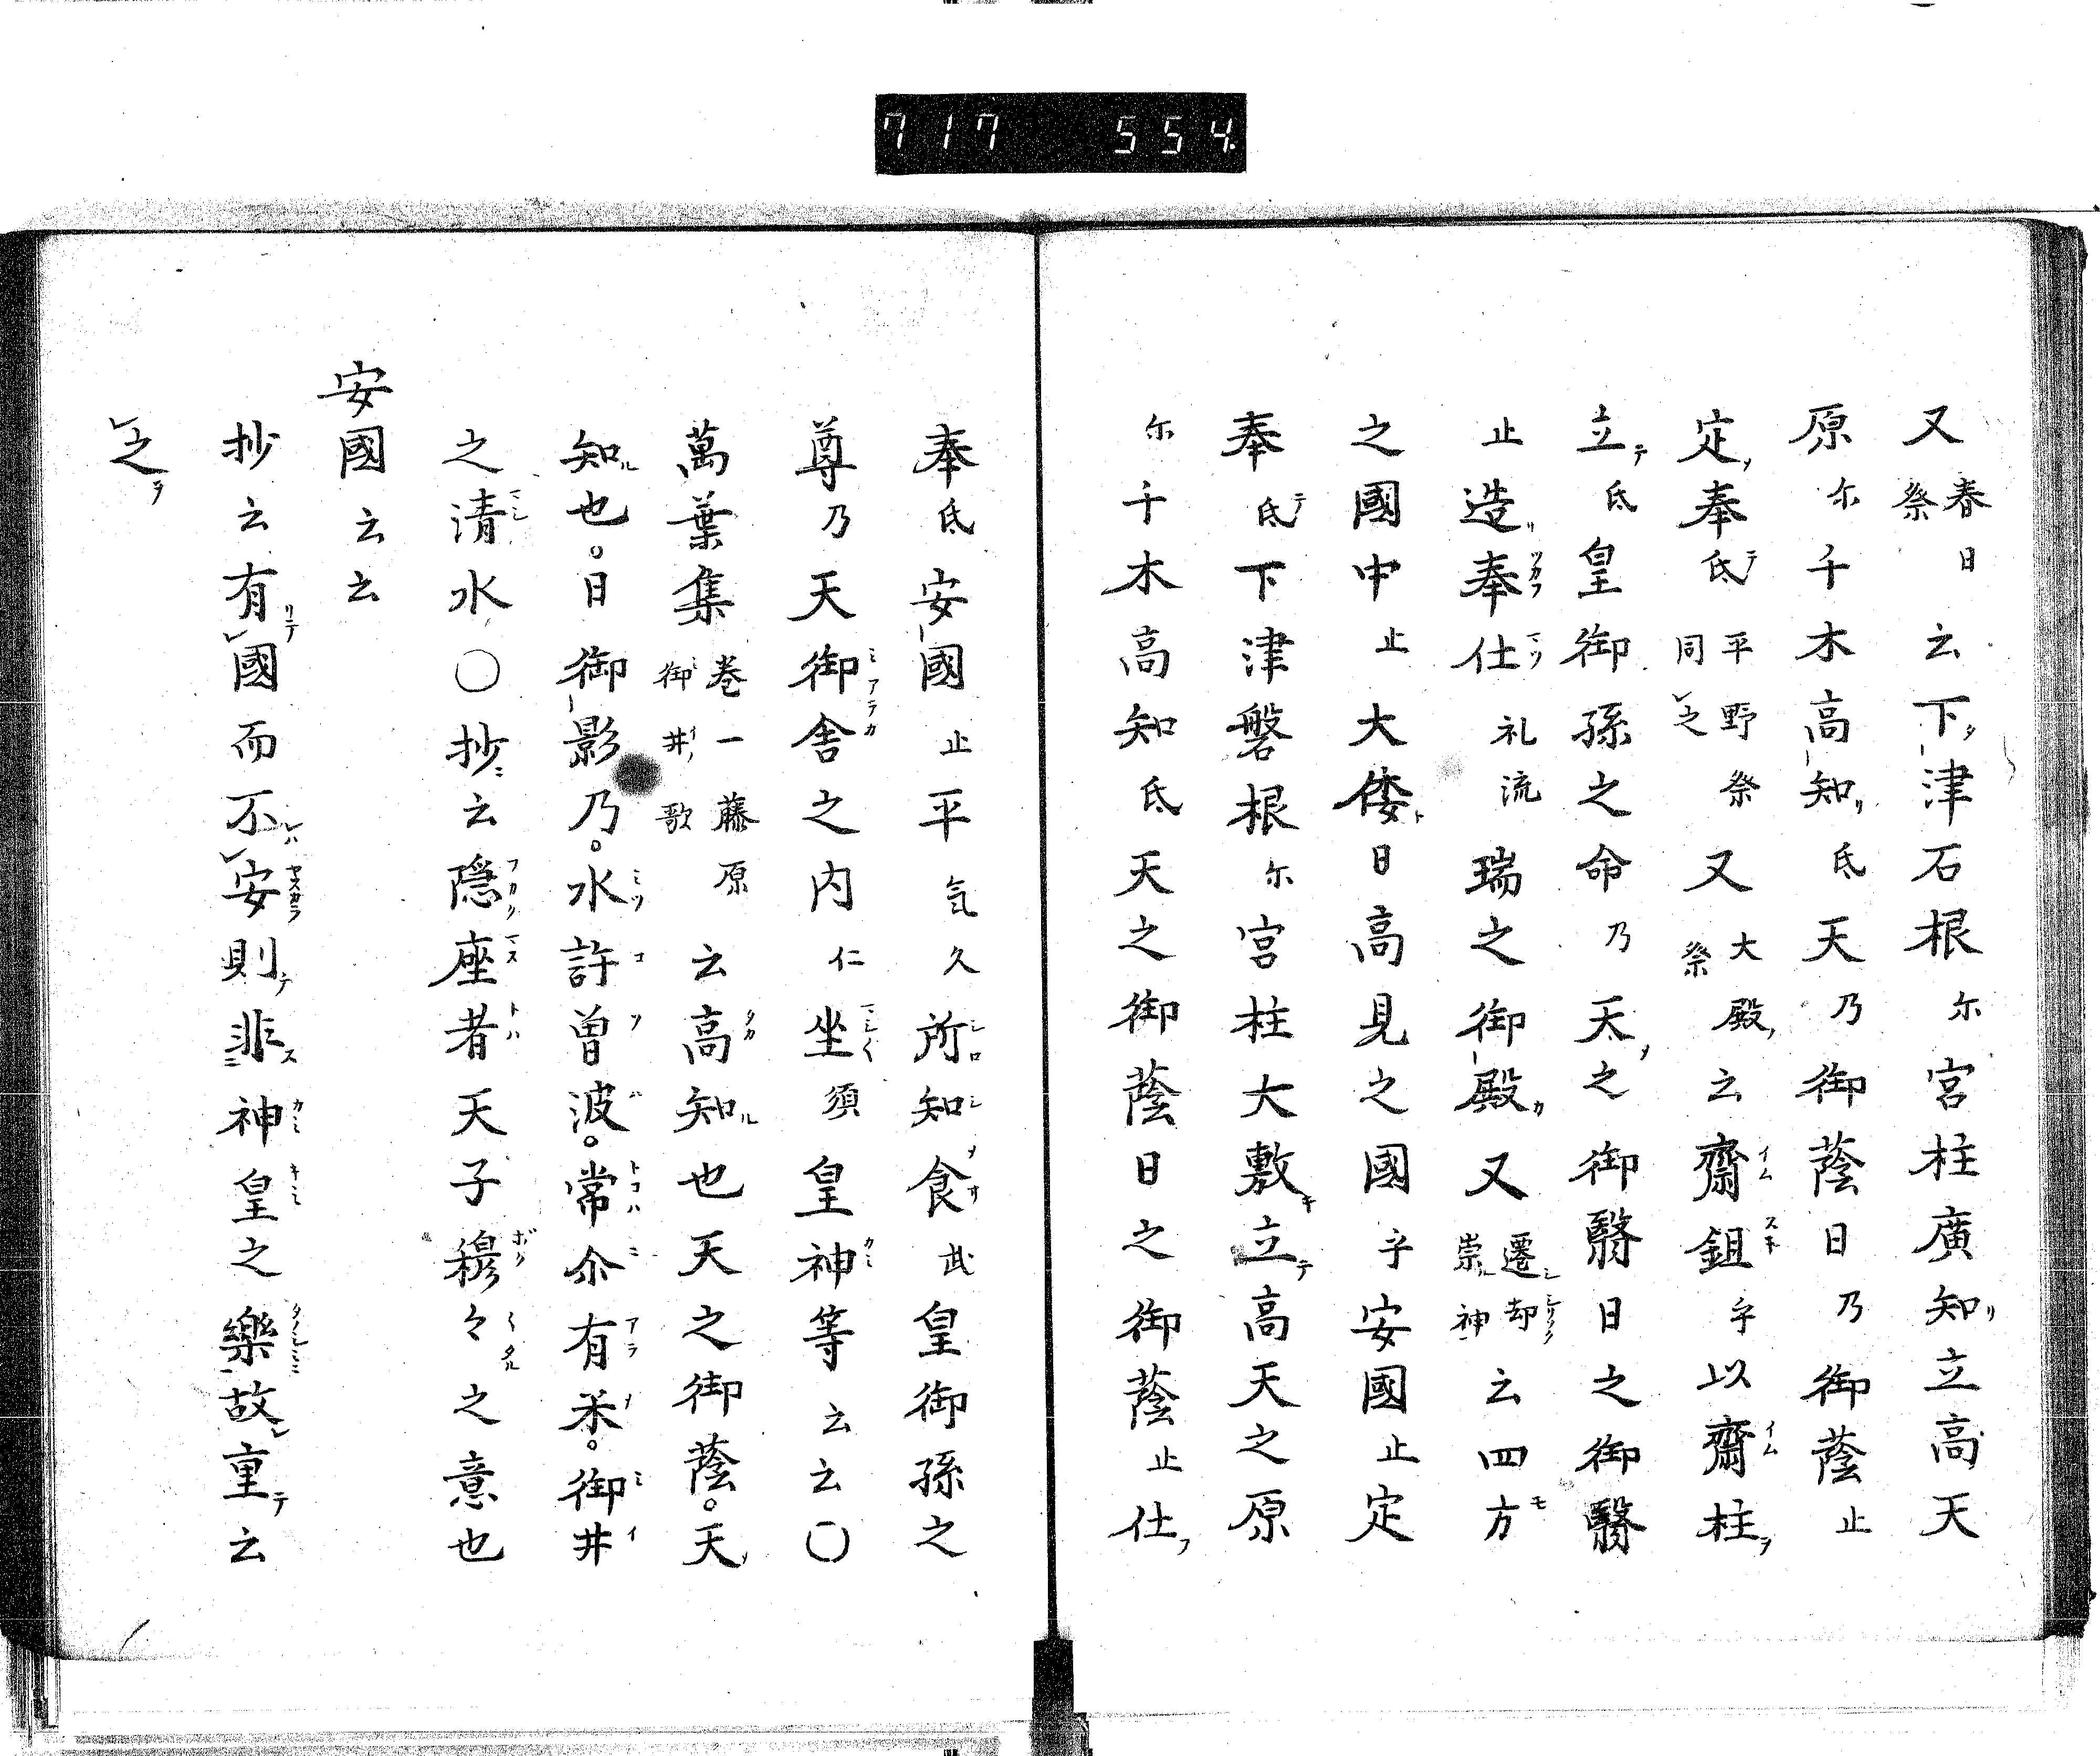 717 554.
又春日祭云下津石根尓宮柱廣知立高天
原尓千木高知氐天乃御蔭日乃御蔭止
定奉氐平野祭同之又大殿祭云齋鉏乎以齋柱
立氐皇御孫之命乃天之御翳日之御翳
止造奉仕礼流瑞之御殿又遷却崇神云四方
之國中止大倭日高見之國乎安國止定
奉氐下津磐根尓宮柱大敷立高天之原
尓千木高知氐天之御蔭日之御蔭止仕
奉氐安國止平気久所知食武皇御孫之
尊乃天御舎之内仁坐須皇神等云云〇
萬葉集巻一藤原御井歌云高知也天之御蔭。天
知也。日御影乃。水許曽波。常尒有米。御井
之清水〇抄云隠座者天子穆々之意也
安國云云
抄云有國而不安則非神皇之樂故重云
之